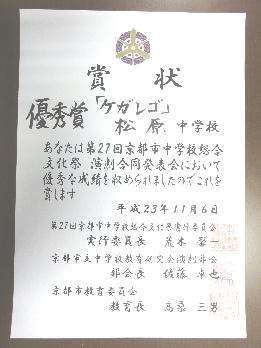 賞状
優秀賞「ケガレゴ」
松原中学校
あなたは第27回京都市中学校総合
文化祭 演劇合同発表会において
優秀な成績を収められましたのでこれを
賞します
平成23年11月6日
第27回京都市中学校総合文化祭実行委員会
実行委員長 荒木 
京都市立中学校教育研究会演劇部会
部会長 佐藤卓也
京都市教育委員会
教育長 高桑三男